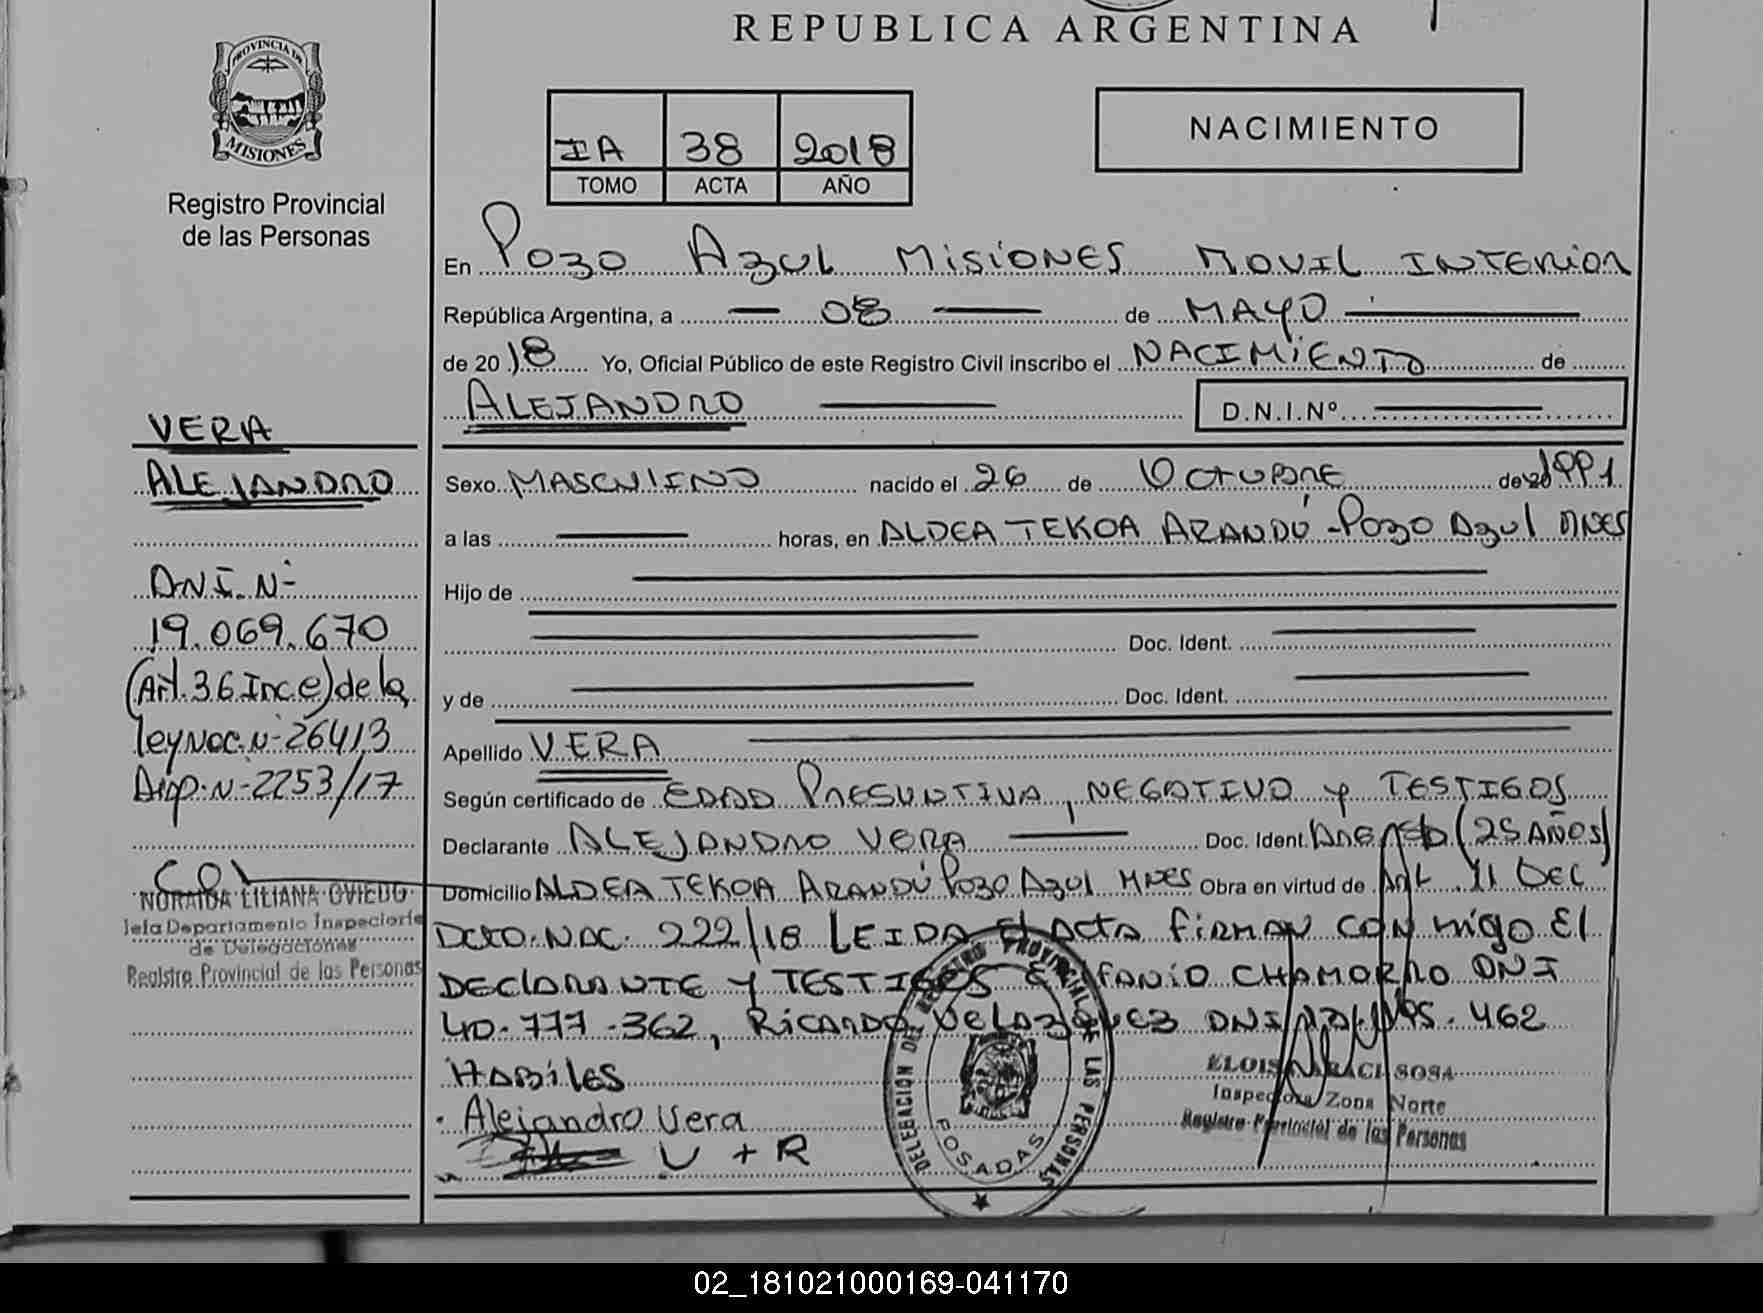 REPUBLICA ARGENTINA
PROVINCIA DE
MISIONES
Registro Provincial
de las Personas
IA 38 2018
TOMO ACTA AÑO
NACIMIENTO
En Pozo Azul Misiones Movil Interior
República Argentina, a 08 de MAYO
de 2018 Yo, Oficial Público de este Registro Civil inscribo el NACIMIENTO de
ALEJANDRO D.N.I.Nº
Sexo MASCULINO nacido el 26 de Octubre de 1991
a las horas, en ALDEA TEKOA ARANDÚ - Pozo Azul MNES
Hijo de
Doc. Ident.
y de Doc. Ident.
Apellido VERA
Según certificado de EDAD PRESUNTIVA, NEGATIVO y TESTIGOS
Declarante ALEJANDRO VERA Doc. Ident. (25 AÑOS)
Domicilio ALDEA TEKOA ARANDÚ Pozo Azul MNES Obra en virtud de Art. 11 DEC
DCTO. NAC. 222/18 LEIDA El Acta firman con migo El
DECLARANTE y TESTIGOS CHAMORRO DNI
40.777.362, Ricardo Velazquez DNI 462
HABILES
Alejandro Vera
V + R
VERA
ALEJANDRO
D.N.I. Nº
19.069.670
(Art. 36 Inc. e) de la
ley Nac. Nº 26413
Disp. Nº 2253/17
NORAIDA LILIANA OVIEDO
Jefa Departamento Inspectoría
de Delegaciones
Registro Provincial de las Personas
DELEGACION DEL REGISTRO PROVINCIAL DE LAS PERSONAS
POSADAS
SOSA
Inspectora Zona Norte
Registro Provincial de las Personas
02_181021000169-041170